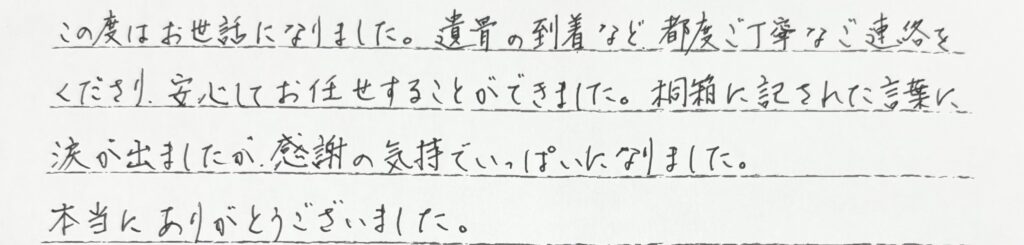 この度はお世話になりました。遺骨の到着など都度ご丁寧なご連絡を
くださり、安心してお任せすることができました。桐箱に記された言葉に
涙が出ましたが、感謝の気持でいっぱいになりました。
本当にありがとうございました。